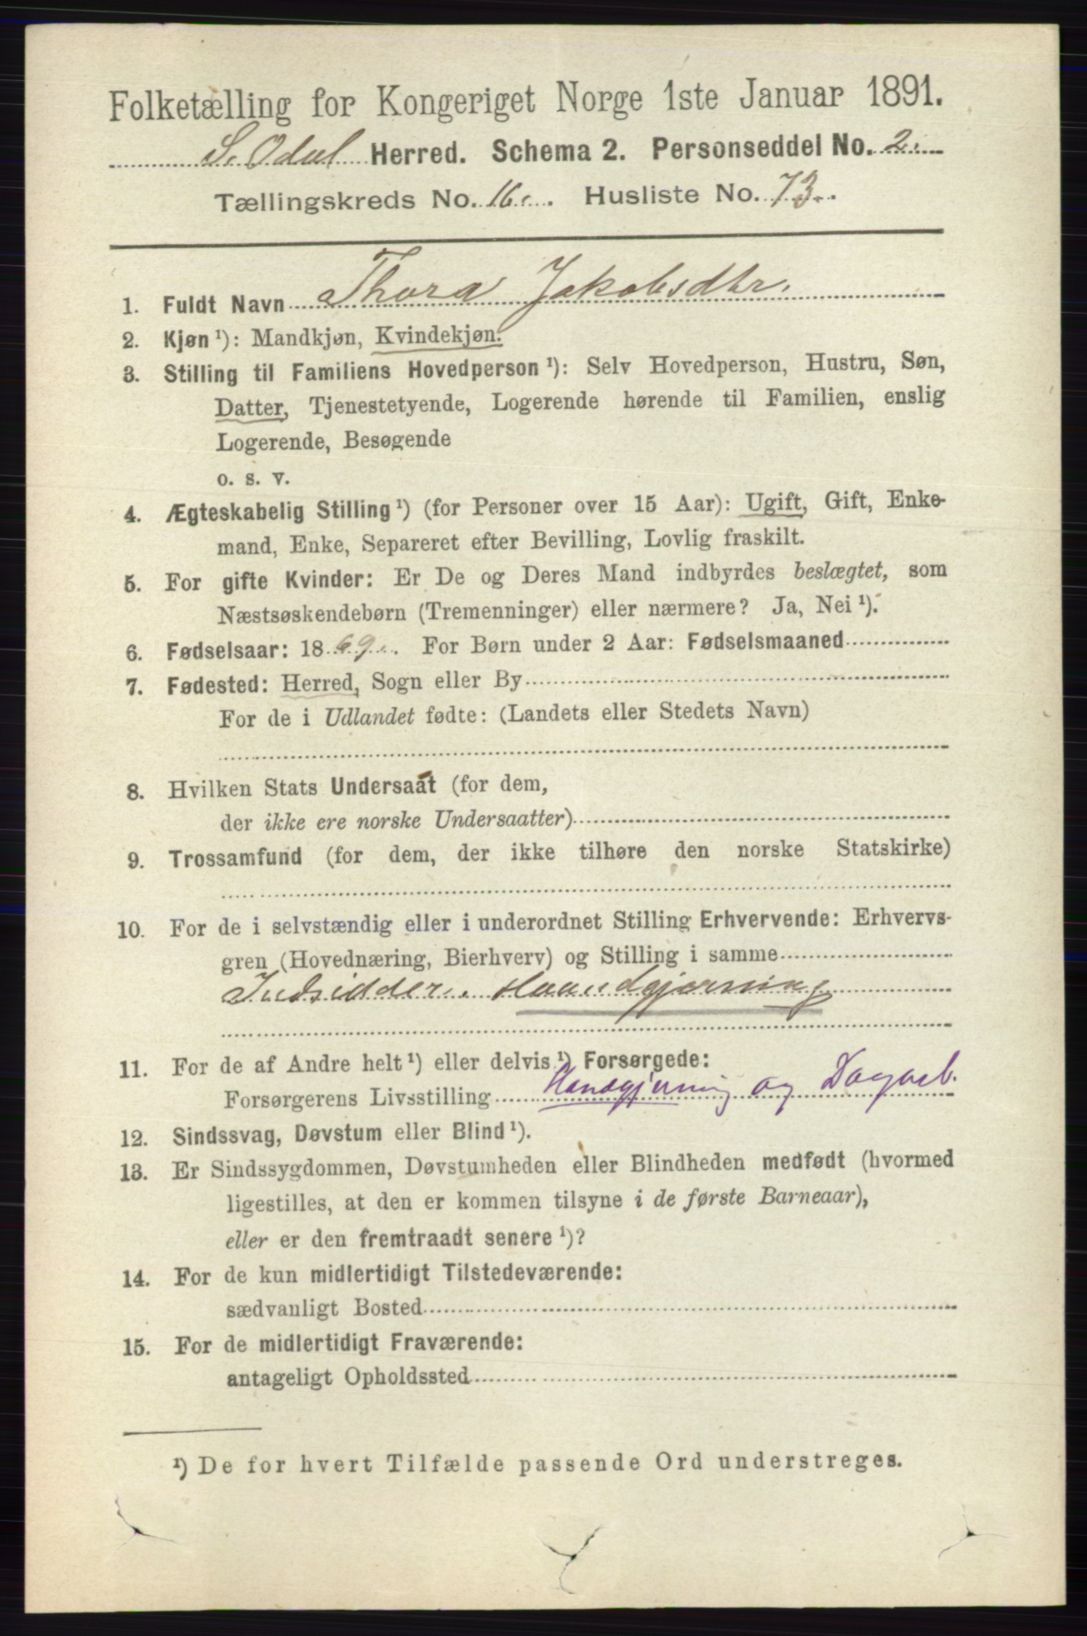 Folketælling for Kongeriget Norge 1ste Januar 1891.
S. Odal Herred. Schema 2. Personseddel No. 2.
Tællingskreds No. 16. Husliste No. 73.
1. Fuldt Navn Thora Jakobsdtr.
2. Kjøn ¹): Mandkjøn, Kvindekjøn.
3. Stilling til Familiens Hovedperson ¹): Selv Hovedperson, Hustru, Søn,
Datter, Tjenestetyende, Logerende hørende til Familien, enslig
Logerende, Besøgende
o. s. v.
4. Ægteskabelig Stilling ¹) (for Personer over 15 Aar): Ugift, Gift, Enke-
mand, Enke, Separeret efter Bevilling, Lovlig fraskilt.
5. For gifte Kvinder: Er De og Deres Mand indbyrdes beslægtet, som
Næstsøskendebørn (Tremenninger) eller nærmere? Ja, Nei ¹).
6. Fødselsaar: 1869. For Børn under 2 Aar: Fødselsmaaned
7. Fødested: Herred, Sogn eller By
For de i Udlandet fødte: (Landets eller Stedets Navn)
8. Hvilken Stats Undersaat (for dem,
der ikke ere norske Undersaatter)
9. Trossamfund (for dem, der ikke tilhøre den norske Statskirke)
10. For de i selvstændig eller i underordnet Stilling Erhvervende: Erhvervs-
gren (Hovednæring, Bierhverv) og Stilling i samme
Indsidder. Haandgjerning
11. For de af Andre helt ¹) eller delvis ¹) Forsørgede:
Forsørgerens Livsstilling Handgjerning og Dagarb.
12. Sindssvag, Døvstum eller Blind ¹).
13. Er Sindssygdommen, Døvstumheden eller Blindheden medfødt (hvormed
ligestilles, at den er kommen tilsyne i de første Barneaar),
eller er den fremtraadt senere ¹)?
14. For de kun midlertidigt Tilstedeværende:
sædvanligt Bosted
15. For de midlertidigt Fraværende:
antageligt Opholdssted
¹) De for hvert Tilfælde passende Ord understreges.